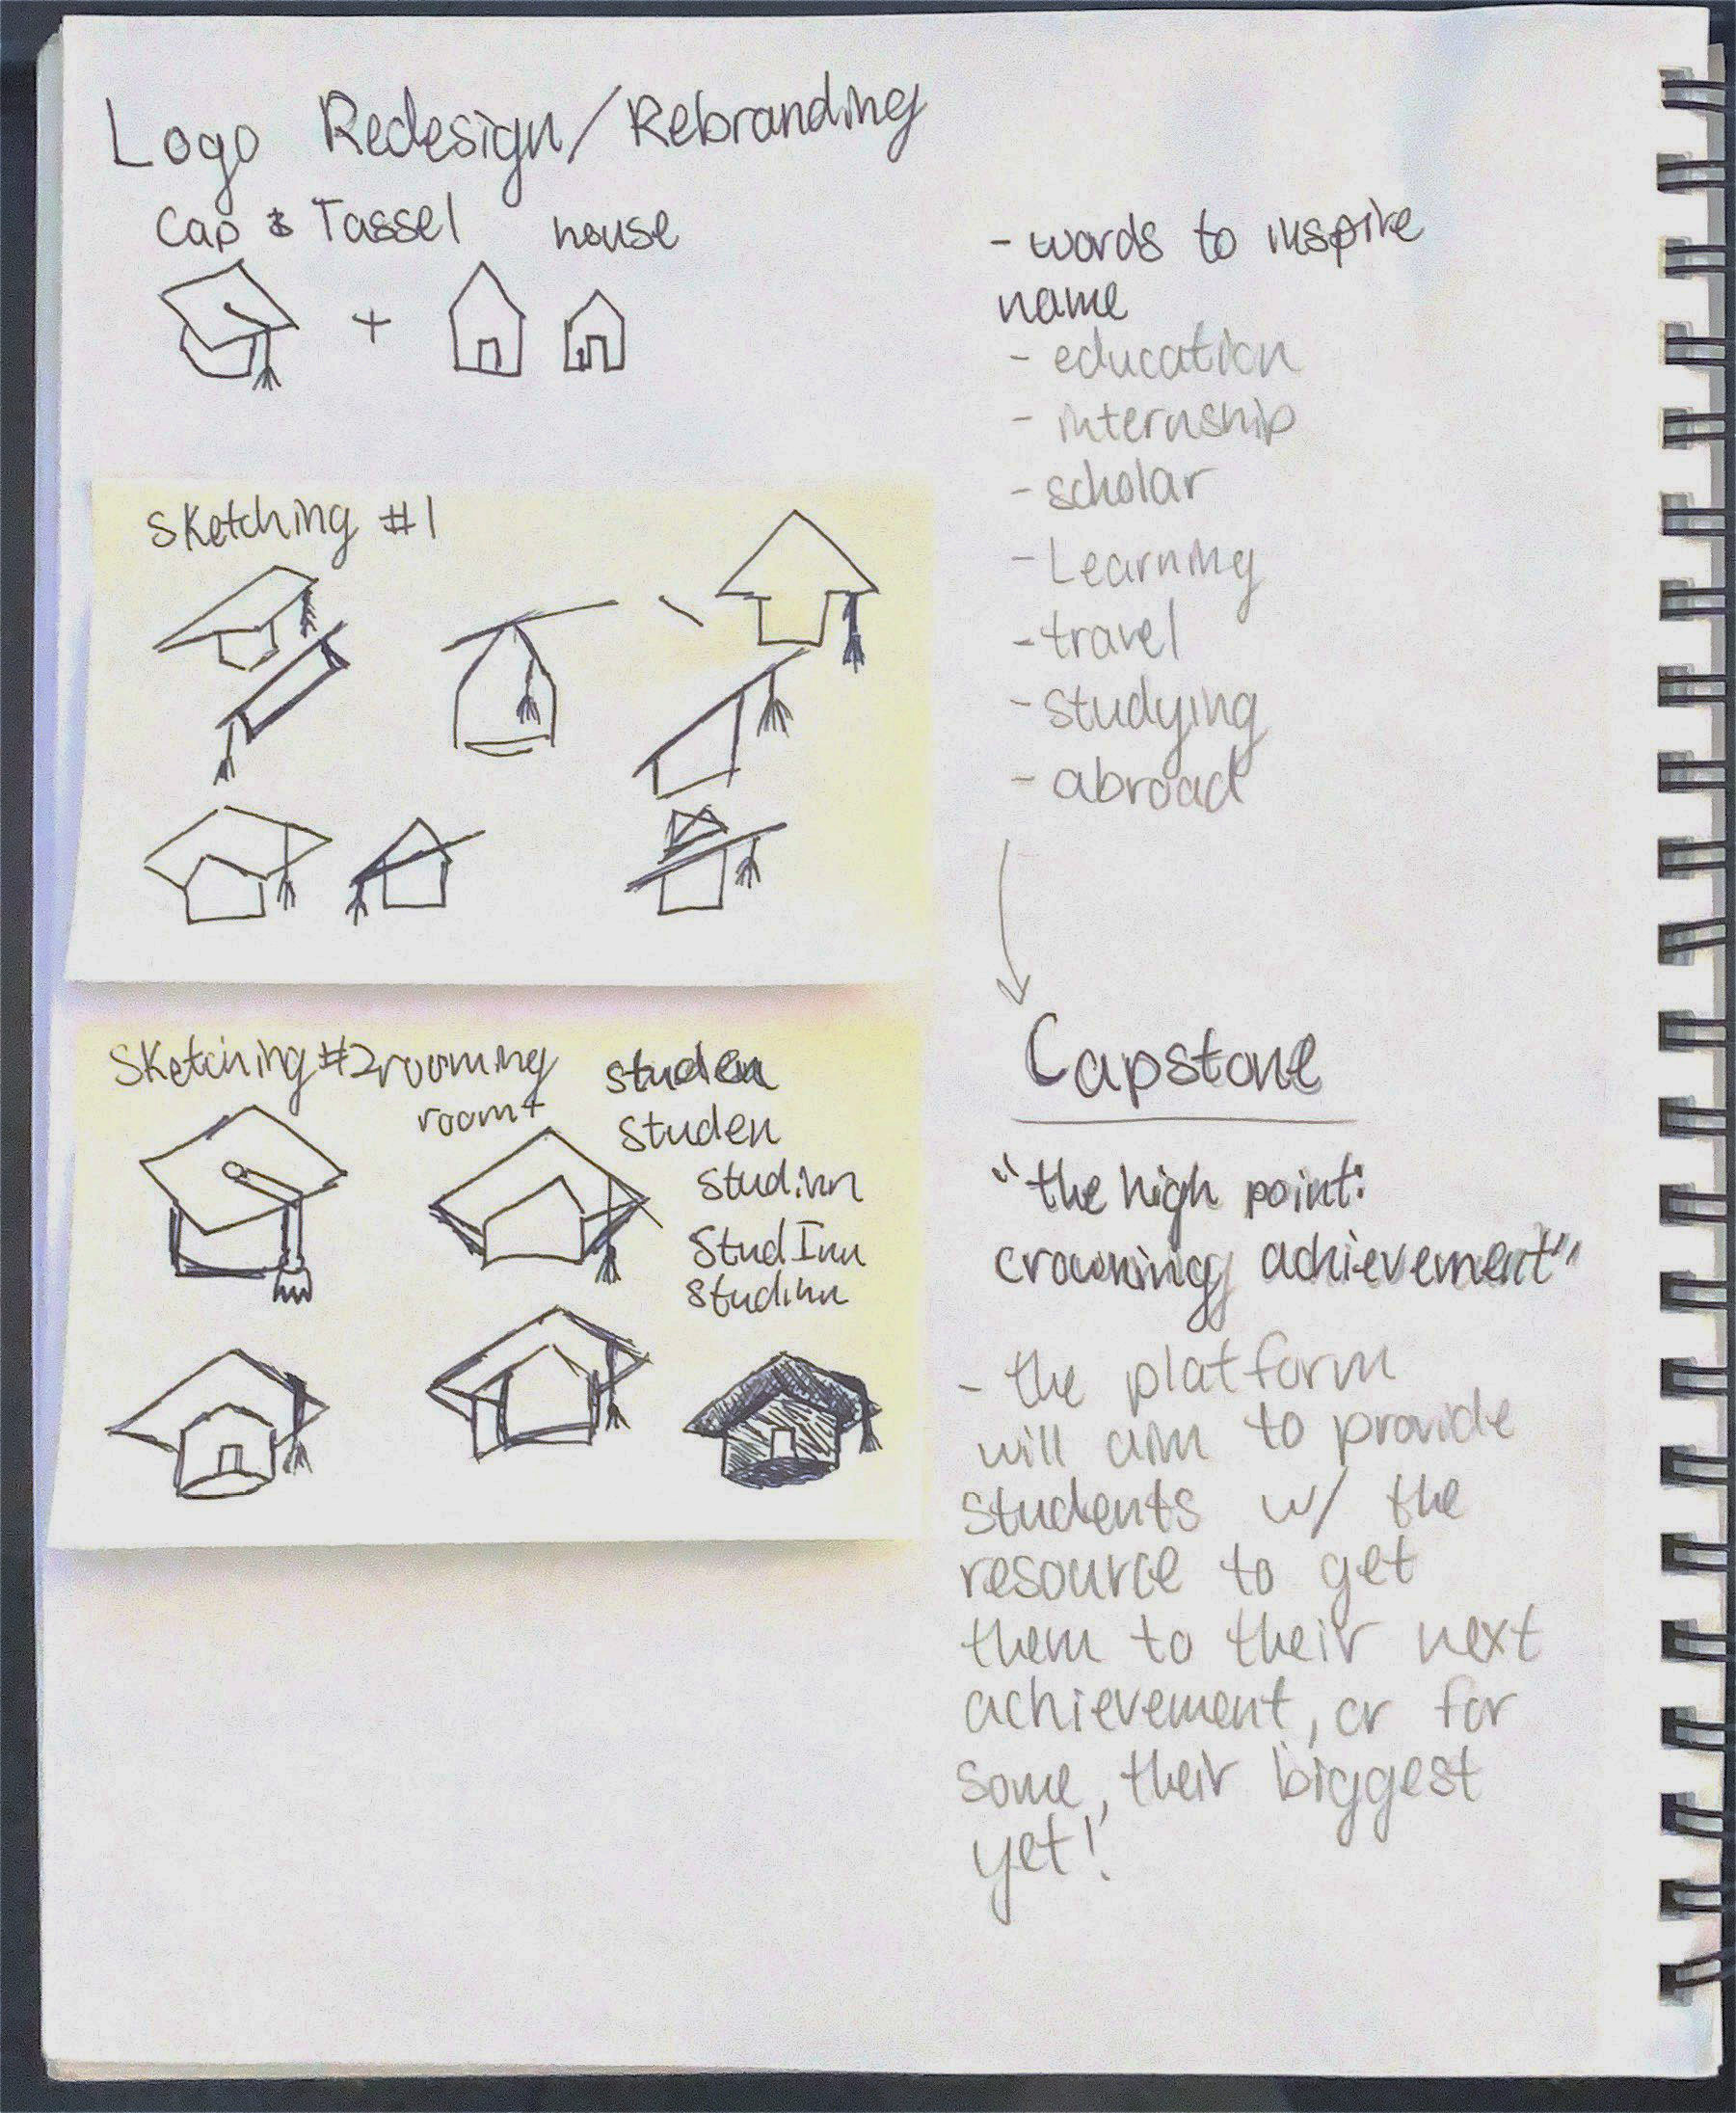 Logo Redesign/Rebranding
Cap & Tassel house
+
Sketching #1
Sketching #2 rooming
room+
studen
studen
studinn
StudInn
studinn
- words to inspire
name
- education
- internship
- scholar
- Learning
- travel
- studying
- abroad
Capstone
"the high point:
crowning achievement"
- the platform
will aim to provide
students w/ the
resource to get
them to their next
achievement, or for
some, their biggest
yet!